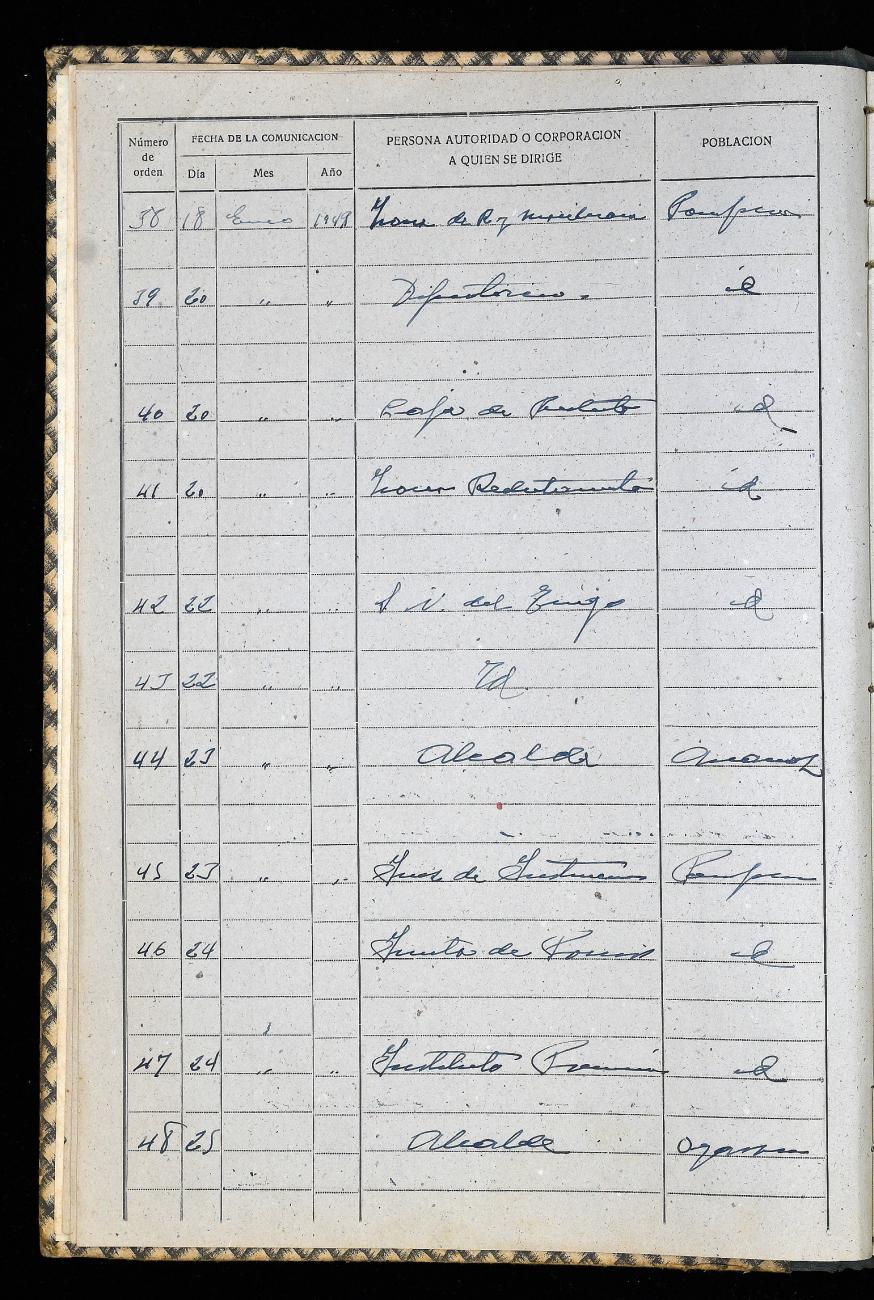 Número de orden FECHA DE LA COMUNICACION PERSONA AUTORIDAD O CORPORACION A QUIEN SE DIRIGE POBLACION
Día Mes Año
38 18 Enero 1949 Zona de R y Pamplona
39 20 " " Diputación id
40 20 " " Caja de Recluta id
41 20 " " Zona Reclutamiento id
42 22 " " S N. del Trigo id
43 22 " " Id
44 23 " " Alcalde
45 23 " " Juez de Instrucción Pamplona
46 24 Junta de id
47 24 " " Instituto id
48 25 Alcalde